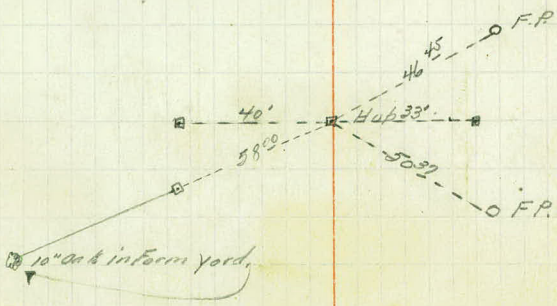 F.P.
46 45
40' Hub 33'
58 00
50 37
F.P.
10" Oak in Farm yard.